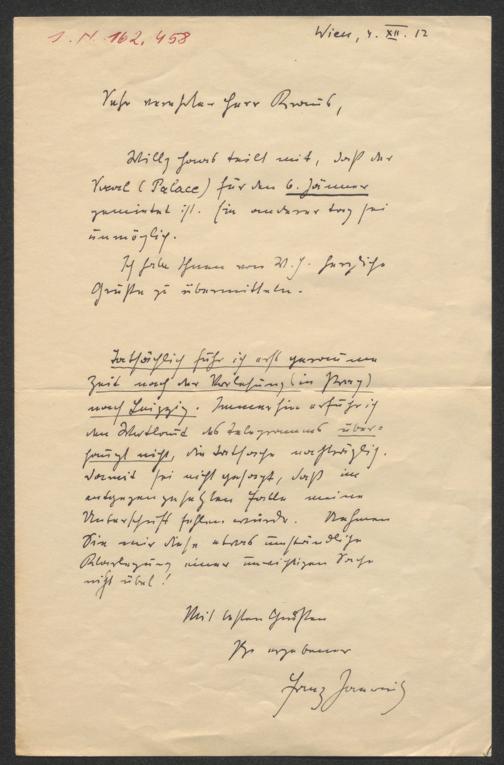 J. N. 162.458
Wien, 4. XII. 12
Sehr verehrter Herr Kraus,
Willy Haas teilt mit, daß der
Saal (Palace) für den 6. Jänner
gemietet ist. Ein anderer Tag sei
unmöglich.
Ich habe Ihnen von W. H. herzliche
Grüße zu übermitteln.
Tatsächlich fuhr ich erst geraume
Zeit nach der Vorlesung (in Prag)
nach Leipzig. Immerhin erfuhr ich
den Wortlaut des Telegramms über=
haupt nicht, die Tatsache nachträglich.
Damit sei nicht gesagt, daß im
entgegengesetzten Falle meine
Unterschrift fehlen würde. Nehmen
Sie mir diese etwas umständliche
Klarlegung einer unwichtigen Sache
nicht übel!
Mit besten Grüßen
Ihr ergebener
Franz Janowitz